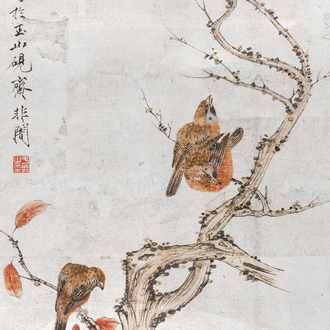 於玉山硯齋非闇